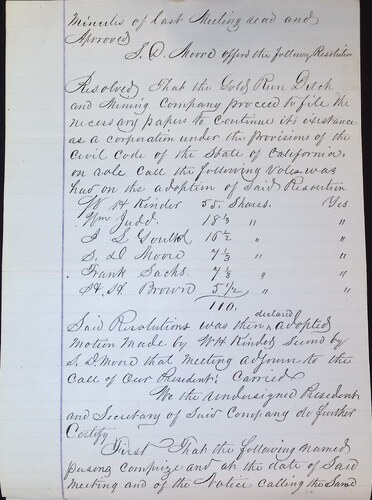 Minutes of last Meeting read and
Approved
S. D. Moore offerd the following Resolution
Resolved That the Gold Run Ditch
and Mining Company proceed to file the
necessary papers to continue its existance
as a corporation under the Provisions of the
Civil Code of the State of California.
on role call the following Votes was
had on the adoption of Said Resolution
W H Kinder 55. Shares. Yes
Wm Judd. 18⅓ " "
I L Gould 16½ " "
S. D Moore 7⅓ " "
Frank Sachs. 7⅓ " "
H. H. Brown 5 1/2 " "
110.
Said Resolutions was then declared adopted
Motion Made by W H Kinder secund by
S. D. Moore that meeting adjourn to the
Call of Our President; Carried
We the undersigned President
and Secretary of Said Company do further
Certify
First That the following named
persons comprize and at the date of Said
Meeting and of the Notice calling the Same